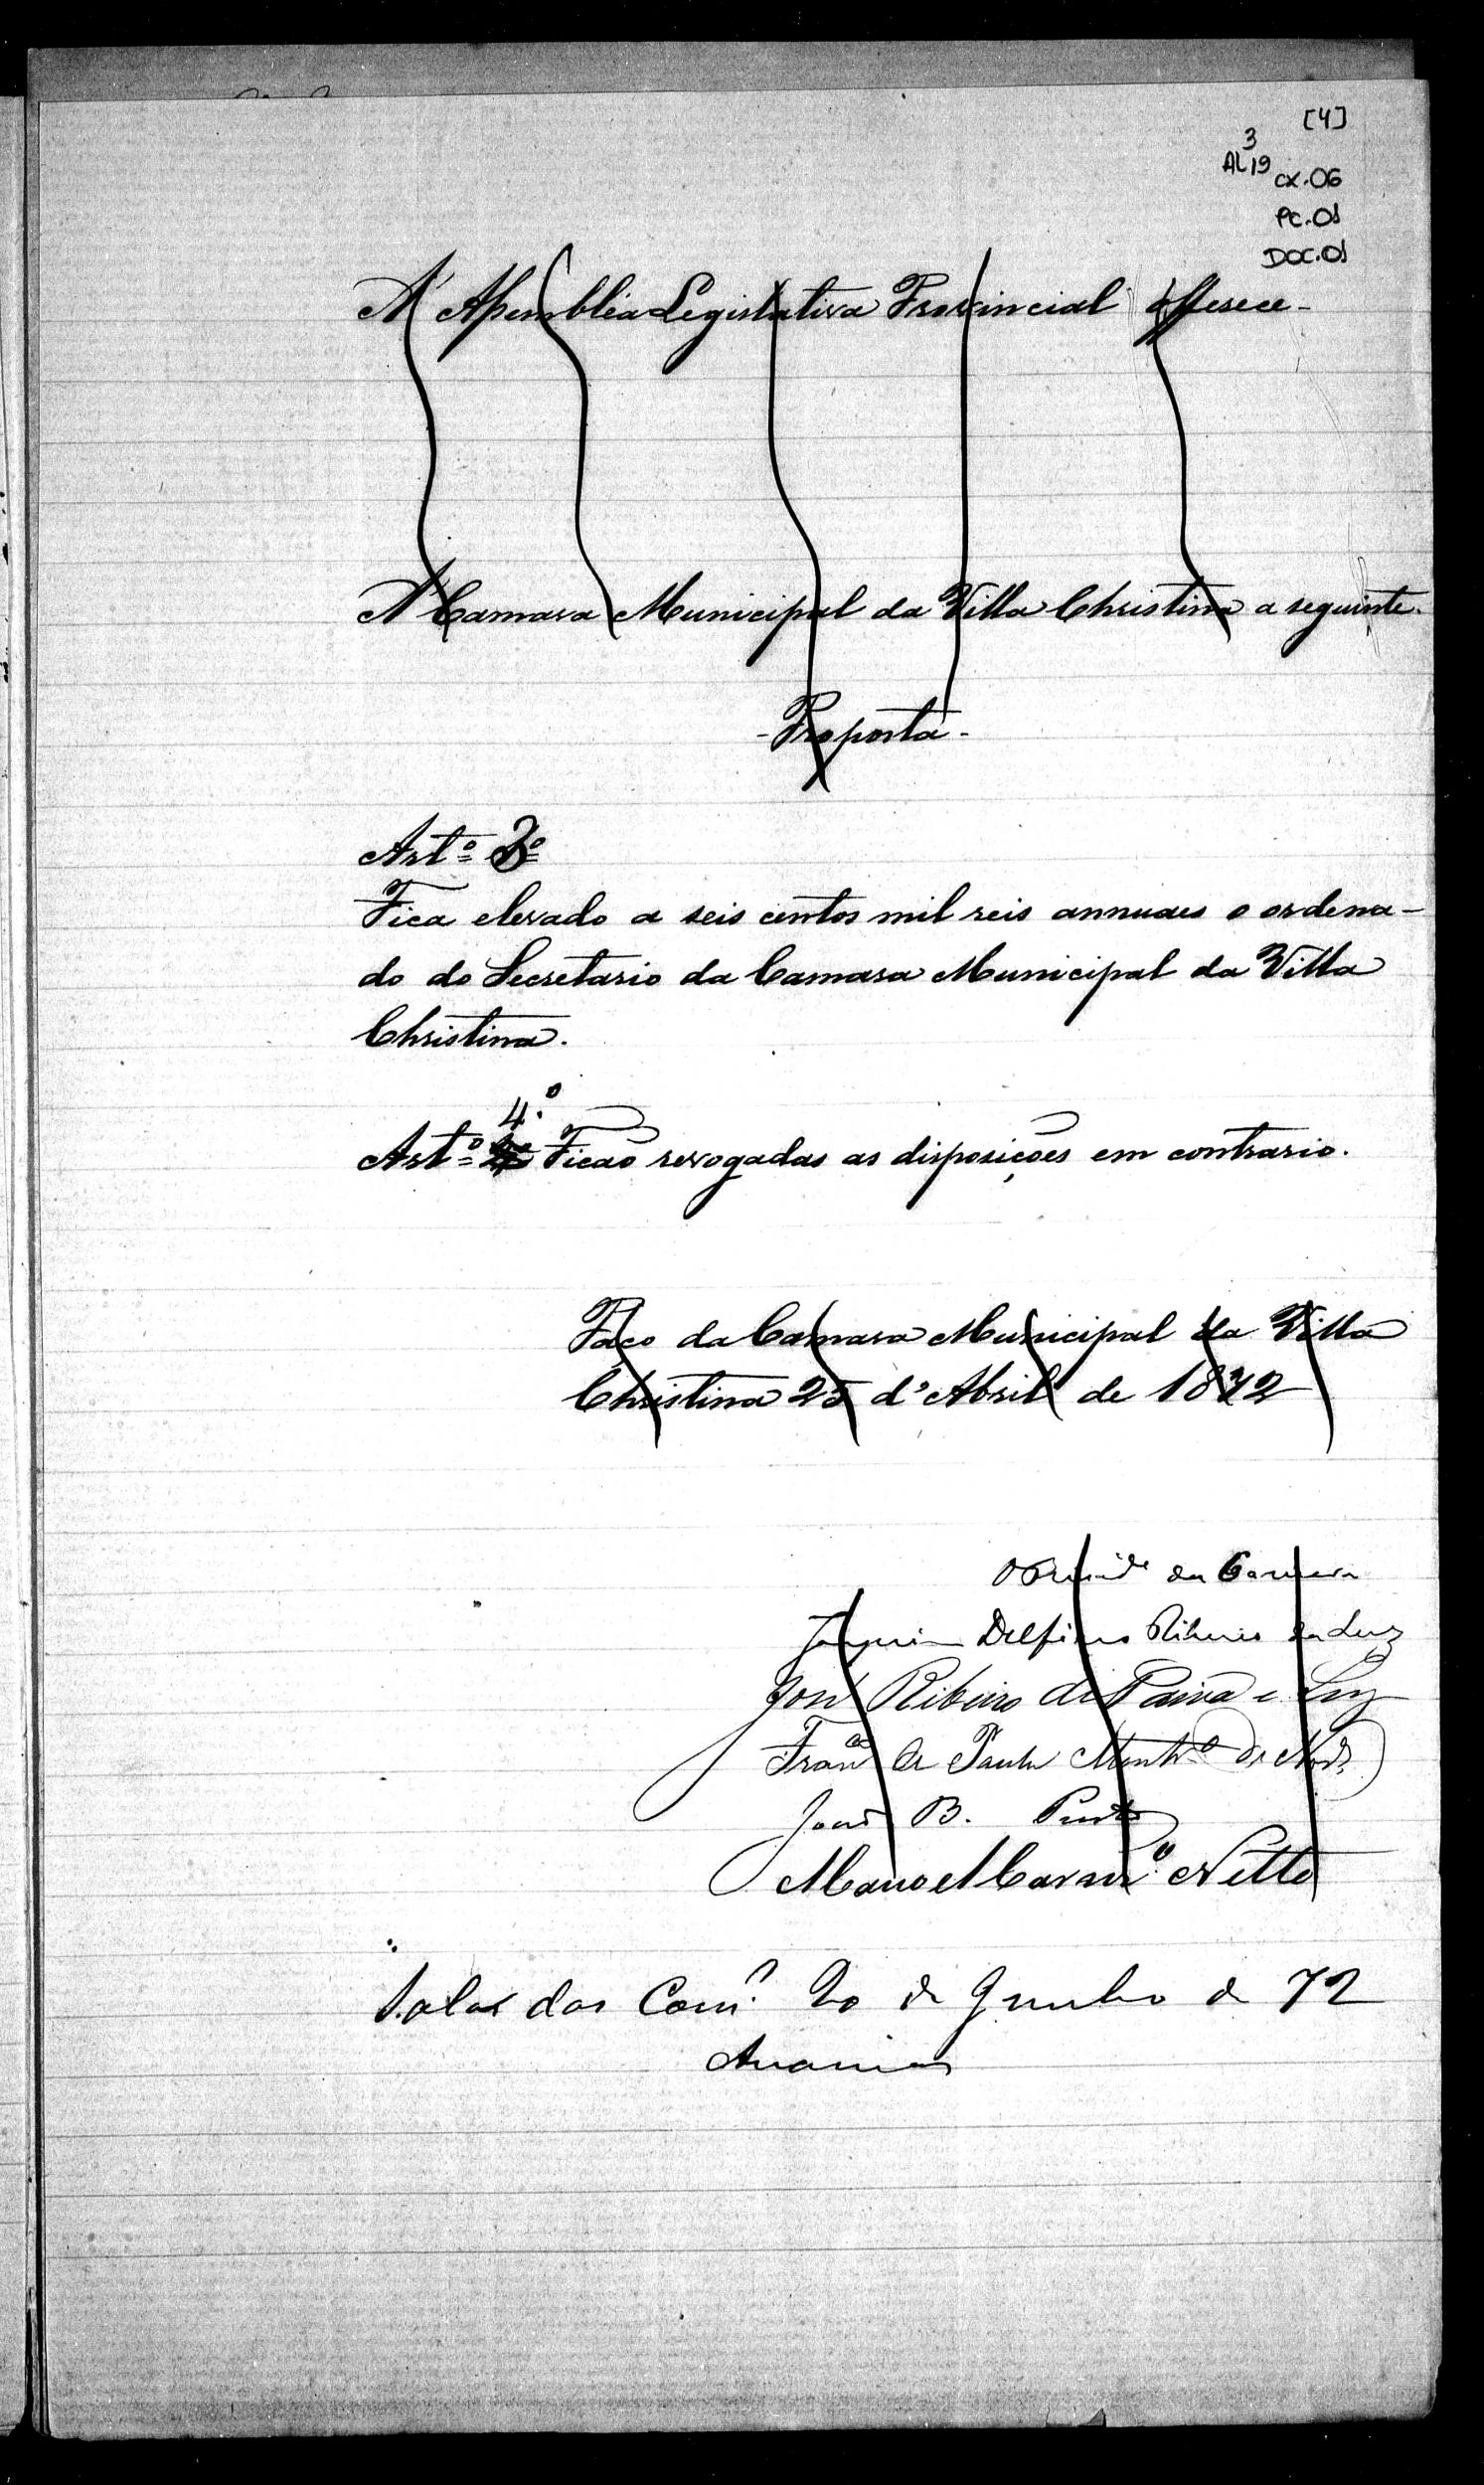 [4]
3
AL 19 CX.06
PC.01
DOC.01
A' Assembléa Legislativa Provincial offerece-
A Camara Municipal da Villa Christina a seguinte.
- Proposta -
Artº 3º
Fica elevado a seis centos mil reis annuaes o ordena-
do do Secretario da Camara Municipal da Villa
Christina.
4.º
Artº Ficão revogadas as disposições em contrario.
Paço da Camara Municipal da Villa
Christina 25 d'Abril de 1872
O Presidᵉ da Camara
Joaquim Delfino Ribeiro da Luz
José Ribeiro de Paiva e Luz
Franᶜᵒ de Paula
João B. Pinto
Manoel Carnrº Netto
Sala das Com.ˢ 20 de Junho de 72